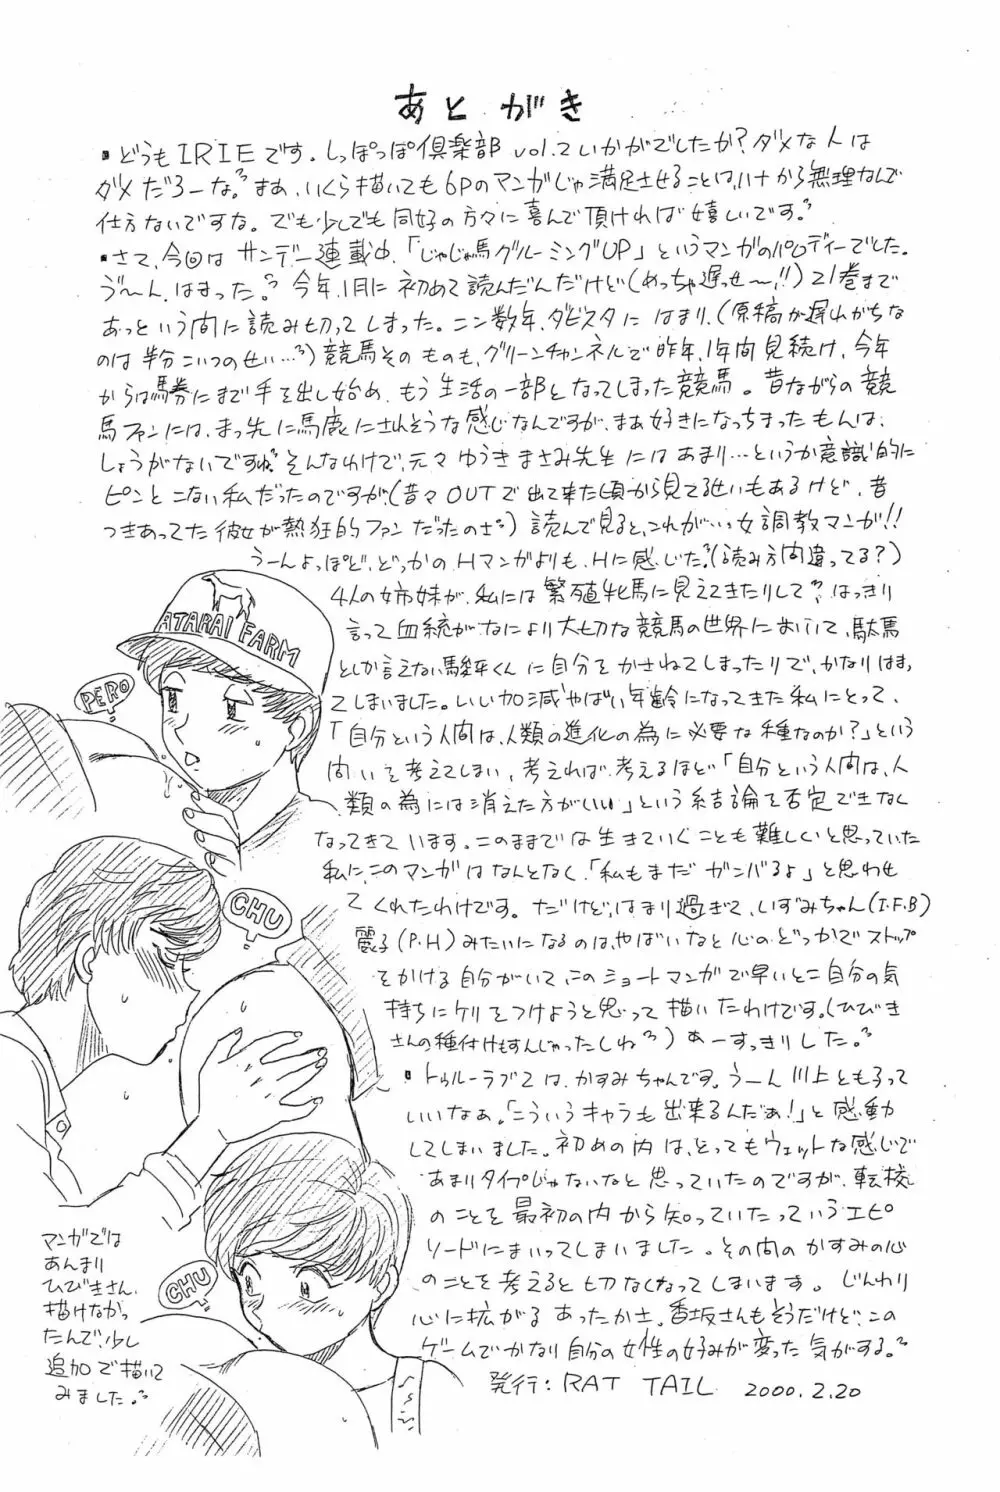 あとがき
・どうもIRIEです。しっぽっぽ倶楽部 vol.2いかがでしたか？ダメな人は
ダメだろーな。まあ、いくら描いても6Pのマンガじゃ満足させることは、ハナから無理なんで
仕方ないですな。でも少しでも同好の方々に喜んで頂ければ嬉しいです。
・さて、今回はサンデー連載中、「じゃじゃ馬グルーミングUP」というマンガのパロディーでした。
う〜ん、はまった。今年、1月に初めて読んだんだけど（めっちゃ遅っせ〜!!）21巻まで
あっという間に読み切ってしまった。ここ数年、ダビスタにはまり、（原稿が遅れがちな
のは半分こいつのせい…）競馬そのものも、グリーンチャンネルで昨年、1年間見続け、今年
からは馬券にまで手を出し始め、もう生活の一部となってしまった競馬。昔ながらの競
馬ファンには、まっ先に馬鹿にされそうな感じなんですが、まあ好きになっちまったもんは、
しょうがないですね。そんなわけで、元々ゆうきまさみ先生にはあまり…というか意識的に
ピンとこない私だったのですが、（昔々OUTで出て来た頃から見てるせいもあるけど、昔
つきあってた彼女が熱狂的ファンだったのさ）読んで見ると、これがいい女調教マンガ!!
うーんよっぽど、どっかのHマンガよりも、Hに感じた。（読み方間違ってる？）
4人の姉妹が、私には繁殖牝馬に見えてきたりして、はっきり
言って血統がなにより大切な競馬の世界において、駄馬
としか言えない駿平くんに自分をかさねてしまったりで、かなりはまっ
てしまいました。いい加減やばい年齢になってきた私にとって、
「自分という人間は、人類の進化の為に必要な種なのか？」という
問いを考えてしまい、考えれば考えるほど「自分という人間は、人
類の為には消えた方がいい」という結論を否定できなく
なってきています。このままでは生きていくことも難しくと思っていた
私に、このマンガはなんとなく、「私もまだガンバるよ」と思わせ
てくれたわけです。だけど、はまり過ぎて、いずみちゃん（I.F.B）
麗子（P.H）みたいになるのは、やばいなと心のどっかでストップ
をかける自分がいて、このショートマンガで早いとこ自分の気
持ちにケリをつけようと思って描いたわけです。（ひびき
さんの種付けもすんじゃったしね）あーすっきりした。
・トゥルーラブ2は、かすみちゃんです。うーん川上とも子って
いいなぁ。「こういうキャラも出来るんだぁ！」と感動
してしまいました。初めの内は、とってもウェットな感じで
あまりタイプじゃないなと思っていたのですが、転校
のことを最初の内から知っていたっていうエピ
ソードにまいってしまいました。その間のかすみの心
のことを考えると切なくなってしまいます。じんわり
心に拡がるあったかさ。香坂さんもそうだけど、この
ゲームでかなり自分の女性の好みが変った気がする。
発行：RAT TAIL 2000.2.20
ATARAI FARM
PERO
CHU
CHU
マンガでは
あんまり
ひびきさん、
描けなかっ
たんで、少し
追加で描いて
みました。